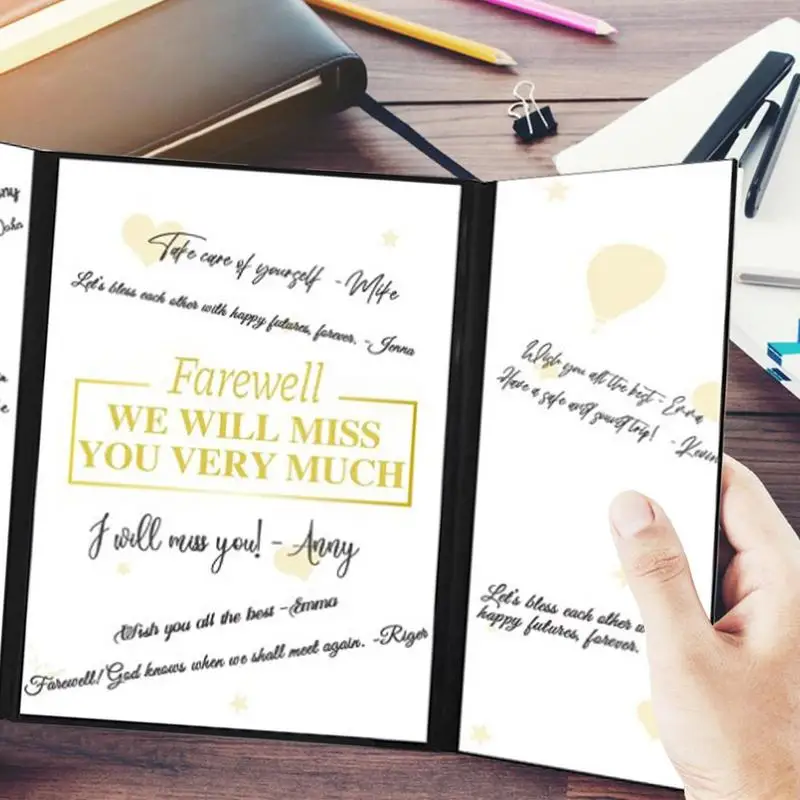 John
Take care of yourself - Mife
Let's bless each other with happy futures, forever. - Jenna
Farewell
WE WILL MISS
YOU VERY MUCH
I will miss you! - Anny
Wish you all the best - Emma
Farewell! God knows when we shall meet again. - Riger
Wish you all the best - Emma
Have a safe and sound trip! - Kevin
Let's bless each other
happy futures, forever.